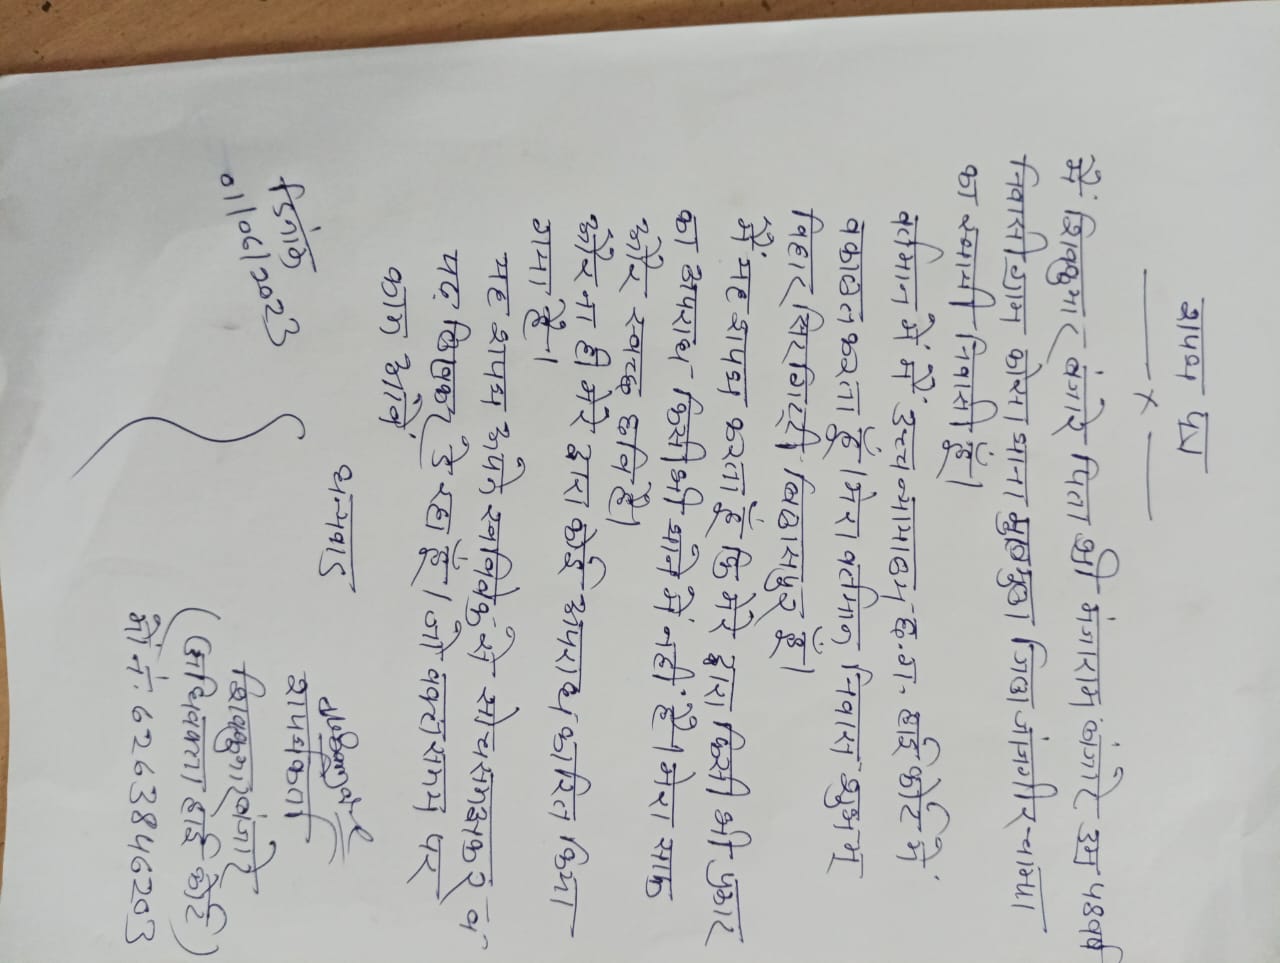 शपथ पत्र
— x —
मैं शिवकुमार बंजारे पिता श्री मंगाराम बंजारे उम्र 48वर्ष
निवासी ग्राम कोसा थाना मुलमुला जिला जांजगीर-चाम्पा
का स्थायी निवासी हूँ।
वर्तमान में मैं उच्च न्यायालय छ.ग. हाई कोर्ट में
वकालत करता हूँ। मेरा वर्तमान निवास शुभम
विहार सिरगिट्टी बिलासपुर है।
मैं यह शपथ करता हूँ कि मेरे द्वारा किसी भी प्रकार
का अपराध किसी भी थाने में नही है। मेरा साफ
और स्वच्छ छवि है।
और ना ही मेरे द्वारा कोई अपराध कारित किया
गया है।
यह शपथ अपने स्वविवेक से सोच समझकर व
पढ़ लिखकर दे रहा हूँ। जो वक्त समय पर
काम आवे।
धन्यवाद
दिनांक
01/06/2023
शपथकर्ता
शिवकुमार बंजारे
(अधिवक्ता हाई कोर्ट)
मो. नं. 6263846203